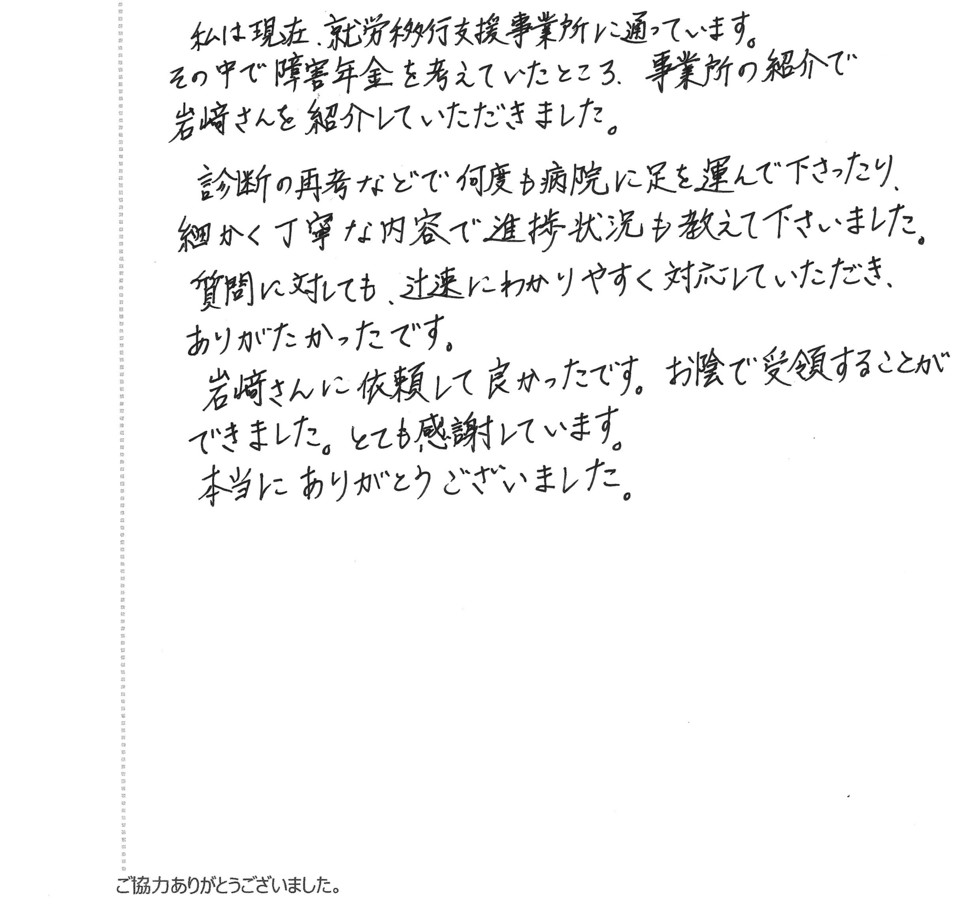 私は現在、就労移行支援事業所に通っています。
その中で障害年金を考えていたところ、事業所の紹介で
岩﨑さんを紹介していただきました。
診断の再考などで何度も病院に足を運んで下さったり、
細かく丁寧な内容で進捗状況も教えて下さいました。
質問に対しても、辻速にわかりやすく対応していただき、
ありがたかったです。
岩﨑さんに依頼して良かったです。お陰で受領することが
できました。とても感謝しています。
本当にありがとうございました。
ご協力ありがとうございました。